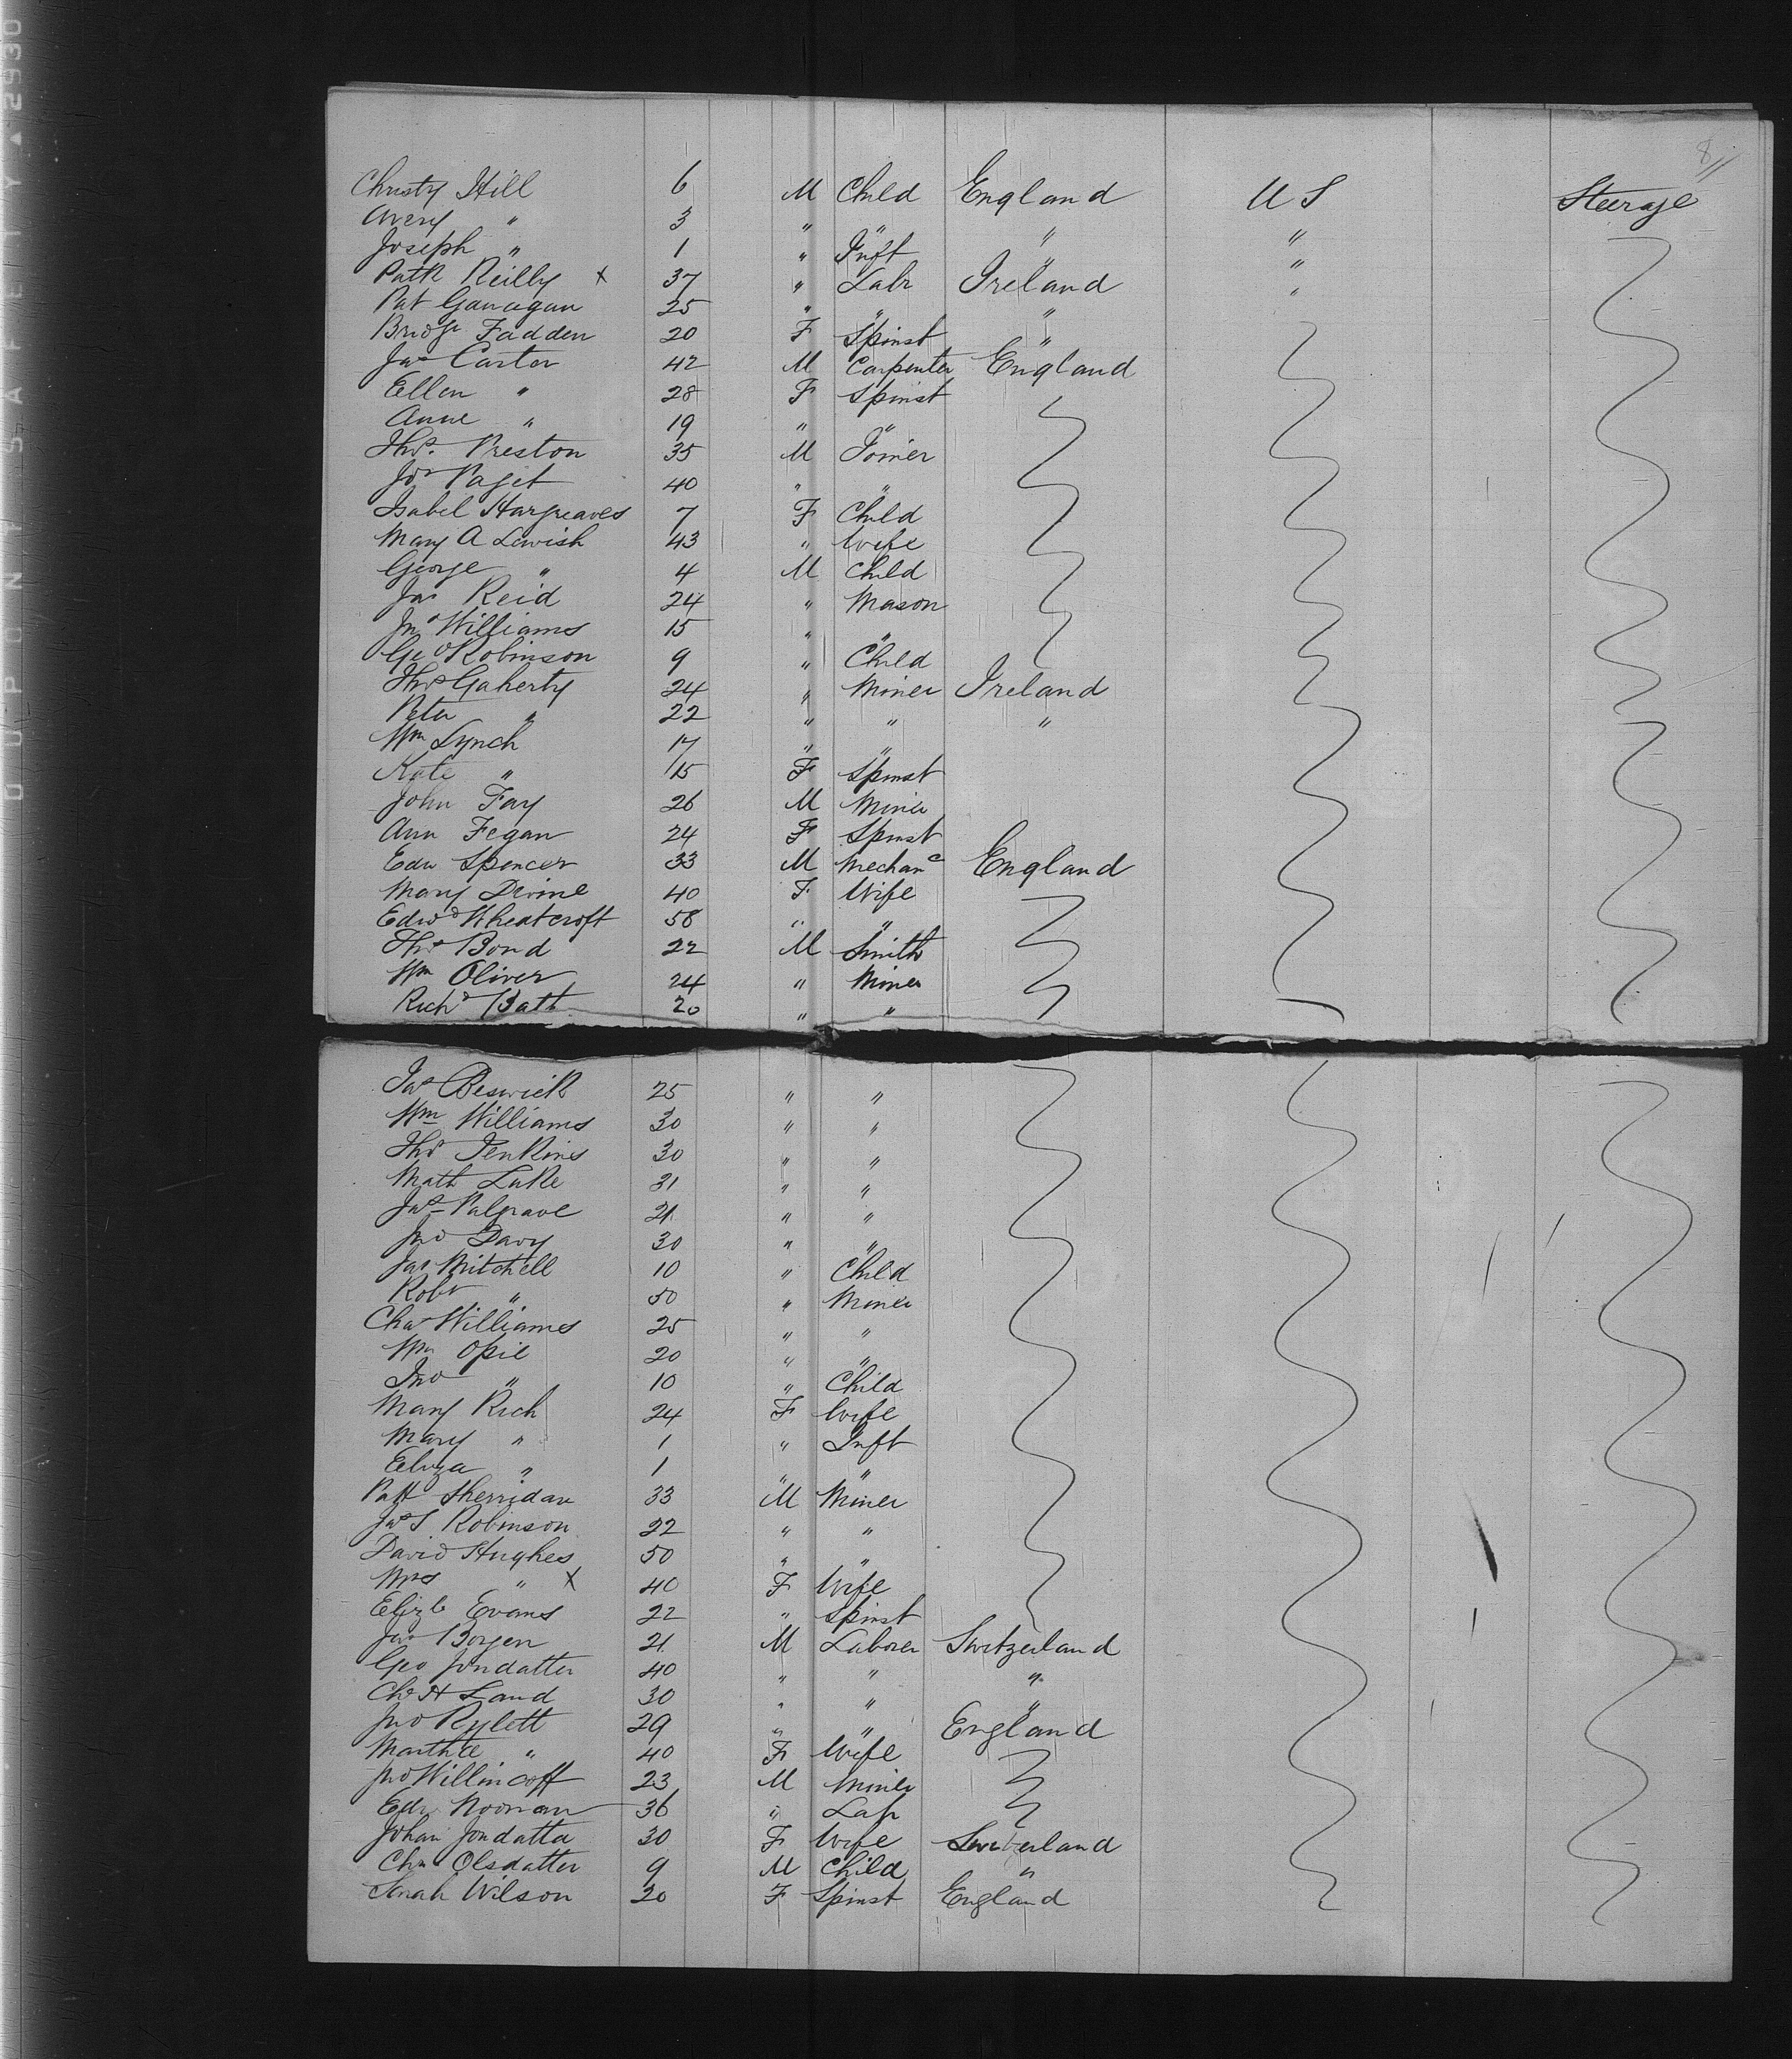 8
Christy Hill 6 M Child England U S Steerage
Avery " 3 " " " "
Joseph " 1 " Inft " "
Patk Reilly x 37 " Labr Ireland "
Pat Ganagan 25 " " "
Bridgt Fadden 20 F Spinst "
Jas Carter 42 M Carpenter England
Ellen " 28 F Spinst
Anne " 19 " "
Thos. Preston 35 M Joiner
Jos Paget 40 " "
Isabel Hargreaves 7 F Child
Mary A Lewish 43 " Wife
George " 4 M Child
Jas Reid 24 " Mason
Jno Williams 15 " "
Geo Robinson 9 " Child
Thos Gaherty 24 " Miner Ireland
Peter " 22 " " "
Wm Lynch 17 " "
Kate " 15 F Spinst
John Fay 26 M Miner
Ann Fegan 24 F Spinst
Edw Spencer 33 M Mechanc England
Mary Divine 40 F Wife
Edwd Wheatcroft 58 " "
Thos Bond 22 M Smith
Wm Oliver 24 " Miner
Richd Batt 20 " "
Jas Beswick 25 " "
Wm Williams 30 " "
Thos Jenkins 30 " "
Math Luke 31 " "
Jas Palgrave 21 " "
Jno Davy 30 " "
Jas Mitchell 10 " Child
Robt " 50 " Miner
Chas Williams 25 " "
Wm Opie 20 " "
Jno " 10 " Child
Mary Rich 24 F Wife
Mary " 1 " Inft
Eliza " 1 " "
Patk Sherridan 33 M Miner
Jas S Robinson 22 " "
David Hughes 50 " "
Mrs " x 40 F Wife
Elizb Evans 22 " Spinst
Jas Borgen 21 M Laborer Switzerland
Geo Jondatter 40 " " "
Chs H Land 30 " " "
Jno Rylett 29 " " England
Martha " 40 F Wife
Jno Willincoff 23 M Miner
Edw Noonan 36 " Labr
Johan Jondatta 30 F Wife Switzerland
Chs Olsdatter 9 M Child "
Sarah Wilson 20 F Spinst England
DUPONT SAFETY 2930